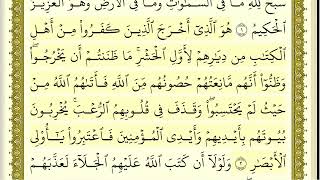 سَبَّحَ لِلَّهِ مَا فِى ٱلسَّمَٰوَٰتِ وَمَا فِى ٱلْأَرْضِ وَهُوَ ٱلْعَزِيزُ
ٱلْحَكِيمُ ١ هُوَ ٱلَّذِىٓ أَخْرَجَ ٱلَّذِينَ كَفَرُوا۟ مِنْ أَهْلِ
ٱلْكِتَٰبِ مِن دِيَٰرِهِمْ لِأَوَّلِ ٱلْحَشْرِ مَا ظَنَنتُمْ أَن يَخْرُجُوا۟
وَظَنُّوٓا۟ أَنَّهُم مَّانِعَتُهُمْ حُصُونُهُم مِّنَ ٱللَّهِ فَأَتَىٰهُمُ ٱللَّهُ مِنْ
حَيْثُ لَمْ يَحْتَسِبُوا۟ وَقَذَفَ فِى قُلُوبِهِمُ ٱلرُّعْبَ يُخْرِبُونَ
بُيُوتَهُم بِأَيْدِيهِمْ وَأَيْدِى ٱلْمُؤْمِنِينَ فَٱعْتَبِرُوا۟ يَٰٓأُو۟لِى
ٱلْأَبْصَٰرِ ٢ وَلَوْلَآ أَن كَتَبَ ٱللَّهُ عَلَيْهِمُ ٱلْجَلَآءَ لَعَذَّبَهُمْ